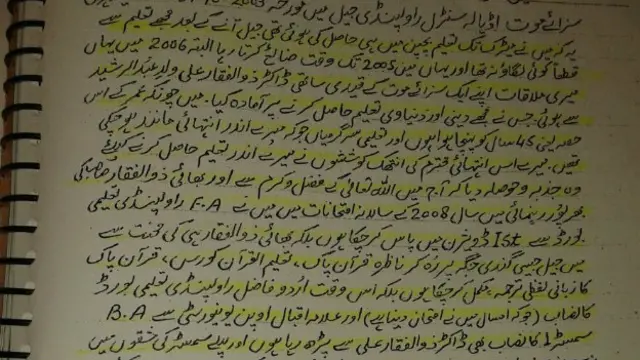 سزائے موت اڈیالہ سنٹرل راولپنڈی جیل میں مورخہ
یہ کہ میں نے میٹرک تک تعلیم بچپن میں ہی حاصل کی ہوئی تھی جیل آنے کے بعد مجھے تعلیم سے
قطعاً کوئی لگاؤ نہ تھا اور یہاں میں 2005 تک وقت ضائع کرتا رہا البتہ 2006 میں یہاں
میری ملاقات اپنے ایک سزائے موت کے قیدی ساتھی ڈاکٹر ذوالفقار علی ولد عبدالرشید
سے ہوئی جس نے مجھے دینی اور دنیاوی تعلیم حاصل کرنے پر آمادہ کیا۔ میں چونکہ عمر کے اس
حصہ یعنی 46 سال کو پہنچا ہوا ہوں اور تعلیمی سرگرمیاں جو کہ میرے اندر انتہائی ماند پڑ چکی
تھیں۔ میرے اس انتہائی محترم کی انتھک کوششوں نے میرے اندر تعلیم حاصل کرنے کیلئے
وہ جذبہ و حوصلہ دیا کہ آج میں اللہ تعالیٰ کے فضل و کرم سے اور بھائی ذوالفقار صاحب کی
بھرپور رہنمائی میں سال 2008 کے سالانہ امتحانات میں میں نے F.A راولپنڈی تعلیمی
بورڈ سے Ist ڈویژن میں پاس کر چکا ہوں بلکہ بھائی ذوالفقار ہی کی محنت سے
میں جیل جیسی گندی جگہ پر رہ کر ناظرہ قرآن پاک، تعلیم القرآن کورس، قرآن پاک
کا زبانی لفظی ترجمہ مکمل کر چکا ہوں بلکہ اس وقت اردو فاضل راولپنڈی تعلیمی بورڈ
کا نصاب (جو کہ امسال میں نے امتحان دینا ہے) اور علامہ اقبال اوپن یونیورسٹی سے B.A
سمسٹر 1 کا نصاب بھی ڈاکٹر ذوالفقار علی سے پڑھ رہا ہوں اور پہلے سمسٹر کی مشقوں میں